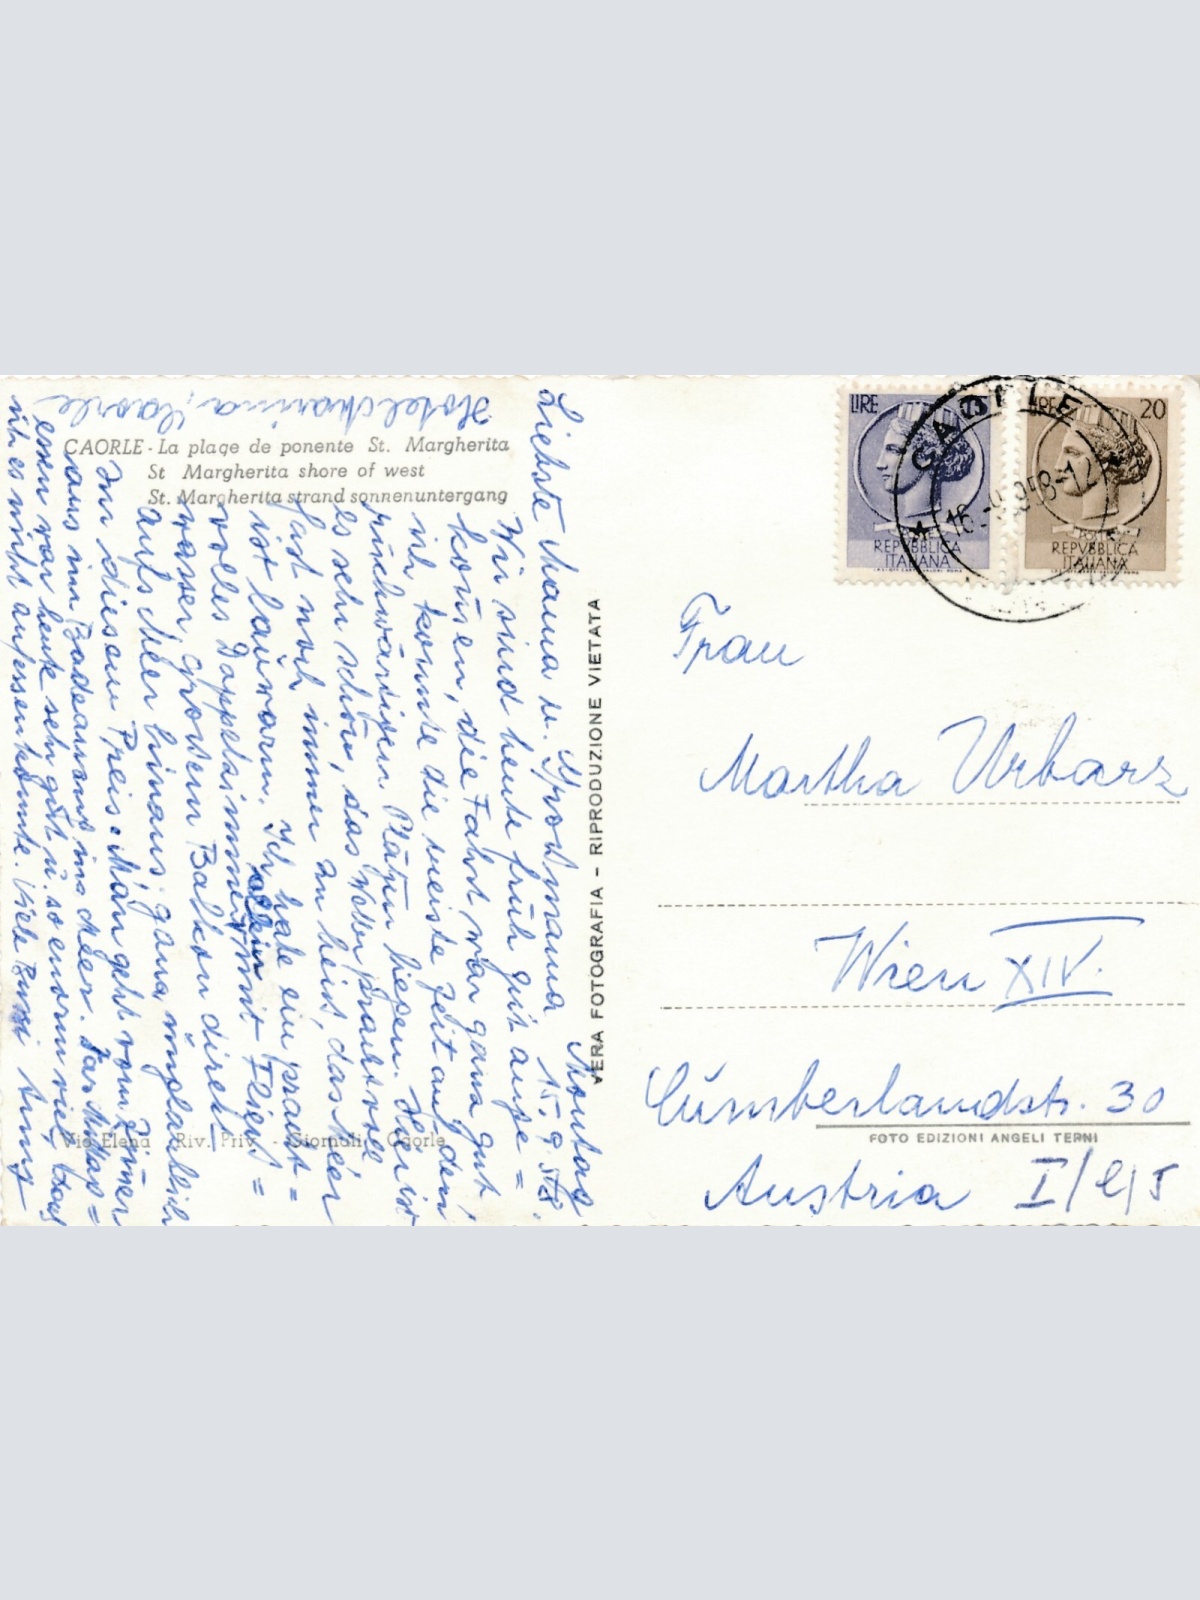 CAORLE - La plage de ponente St. Margherita
St Margherita shore of west
St. Margherita strand sonnenuntergang
Hotel Marina, Caorle
Montag
15. 9. 58.
Liebste Mama u.
Wir sind heute früh gut ange=
kommen, die Fahrt war ganz gut,
ich konnte die meiste Zeit auf den
rückwärtigen Plätzen liegen. Hier ist
es sehr schön, das Wetter prachtvoll
fast noch immer zu heiß, das Meer
ist lauwarm. Ich habe ein pracht=
volles Doppelzimmer allein mit Fließ=
wasser, großem Balkon direkt
aufs Meer hinaus, ganz unglaublich
um diesen Preis. Man geht vom Zimmer
aus im Badeanzug ins Meer. Das Mittag=
essen war heute sehr gut u. so enorm viel, dass
ich es nicht aufessen konnte. Viele Bussi
Via Elena Riv. Priv. - Giornali Caorle
VERA FOTOGRAFIA - RIPRODUZIONE VIETATA
LIRE
REPVBBLICA
ITALIANA
LIRE 20
REPVBBLICA
ITALIANA
CAORLE
16-9-58-12
Frau
Martha Urbarz
Wien XIV.
Cumberlandstr. 30
FOTO EDIZIONI ANGELI TERNI
Austria I/4/5